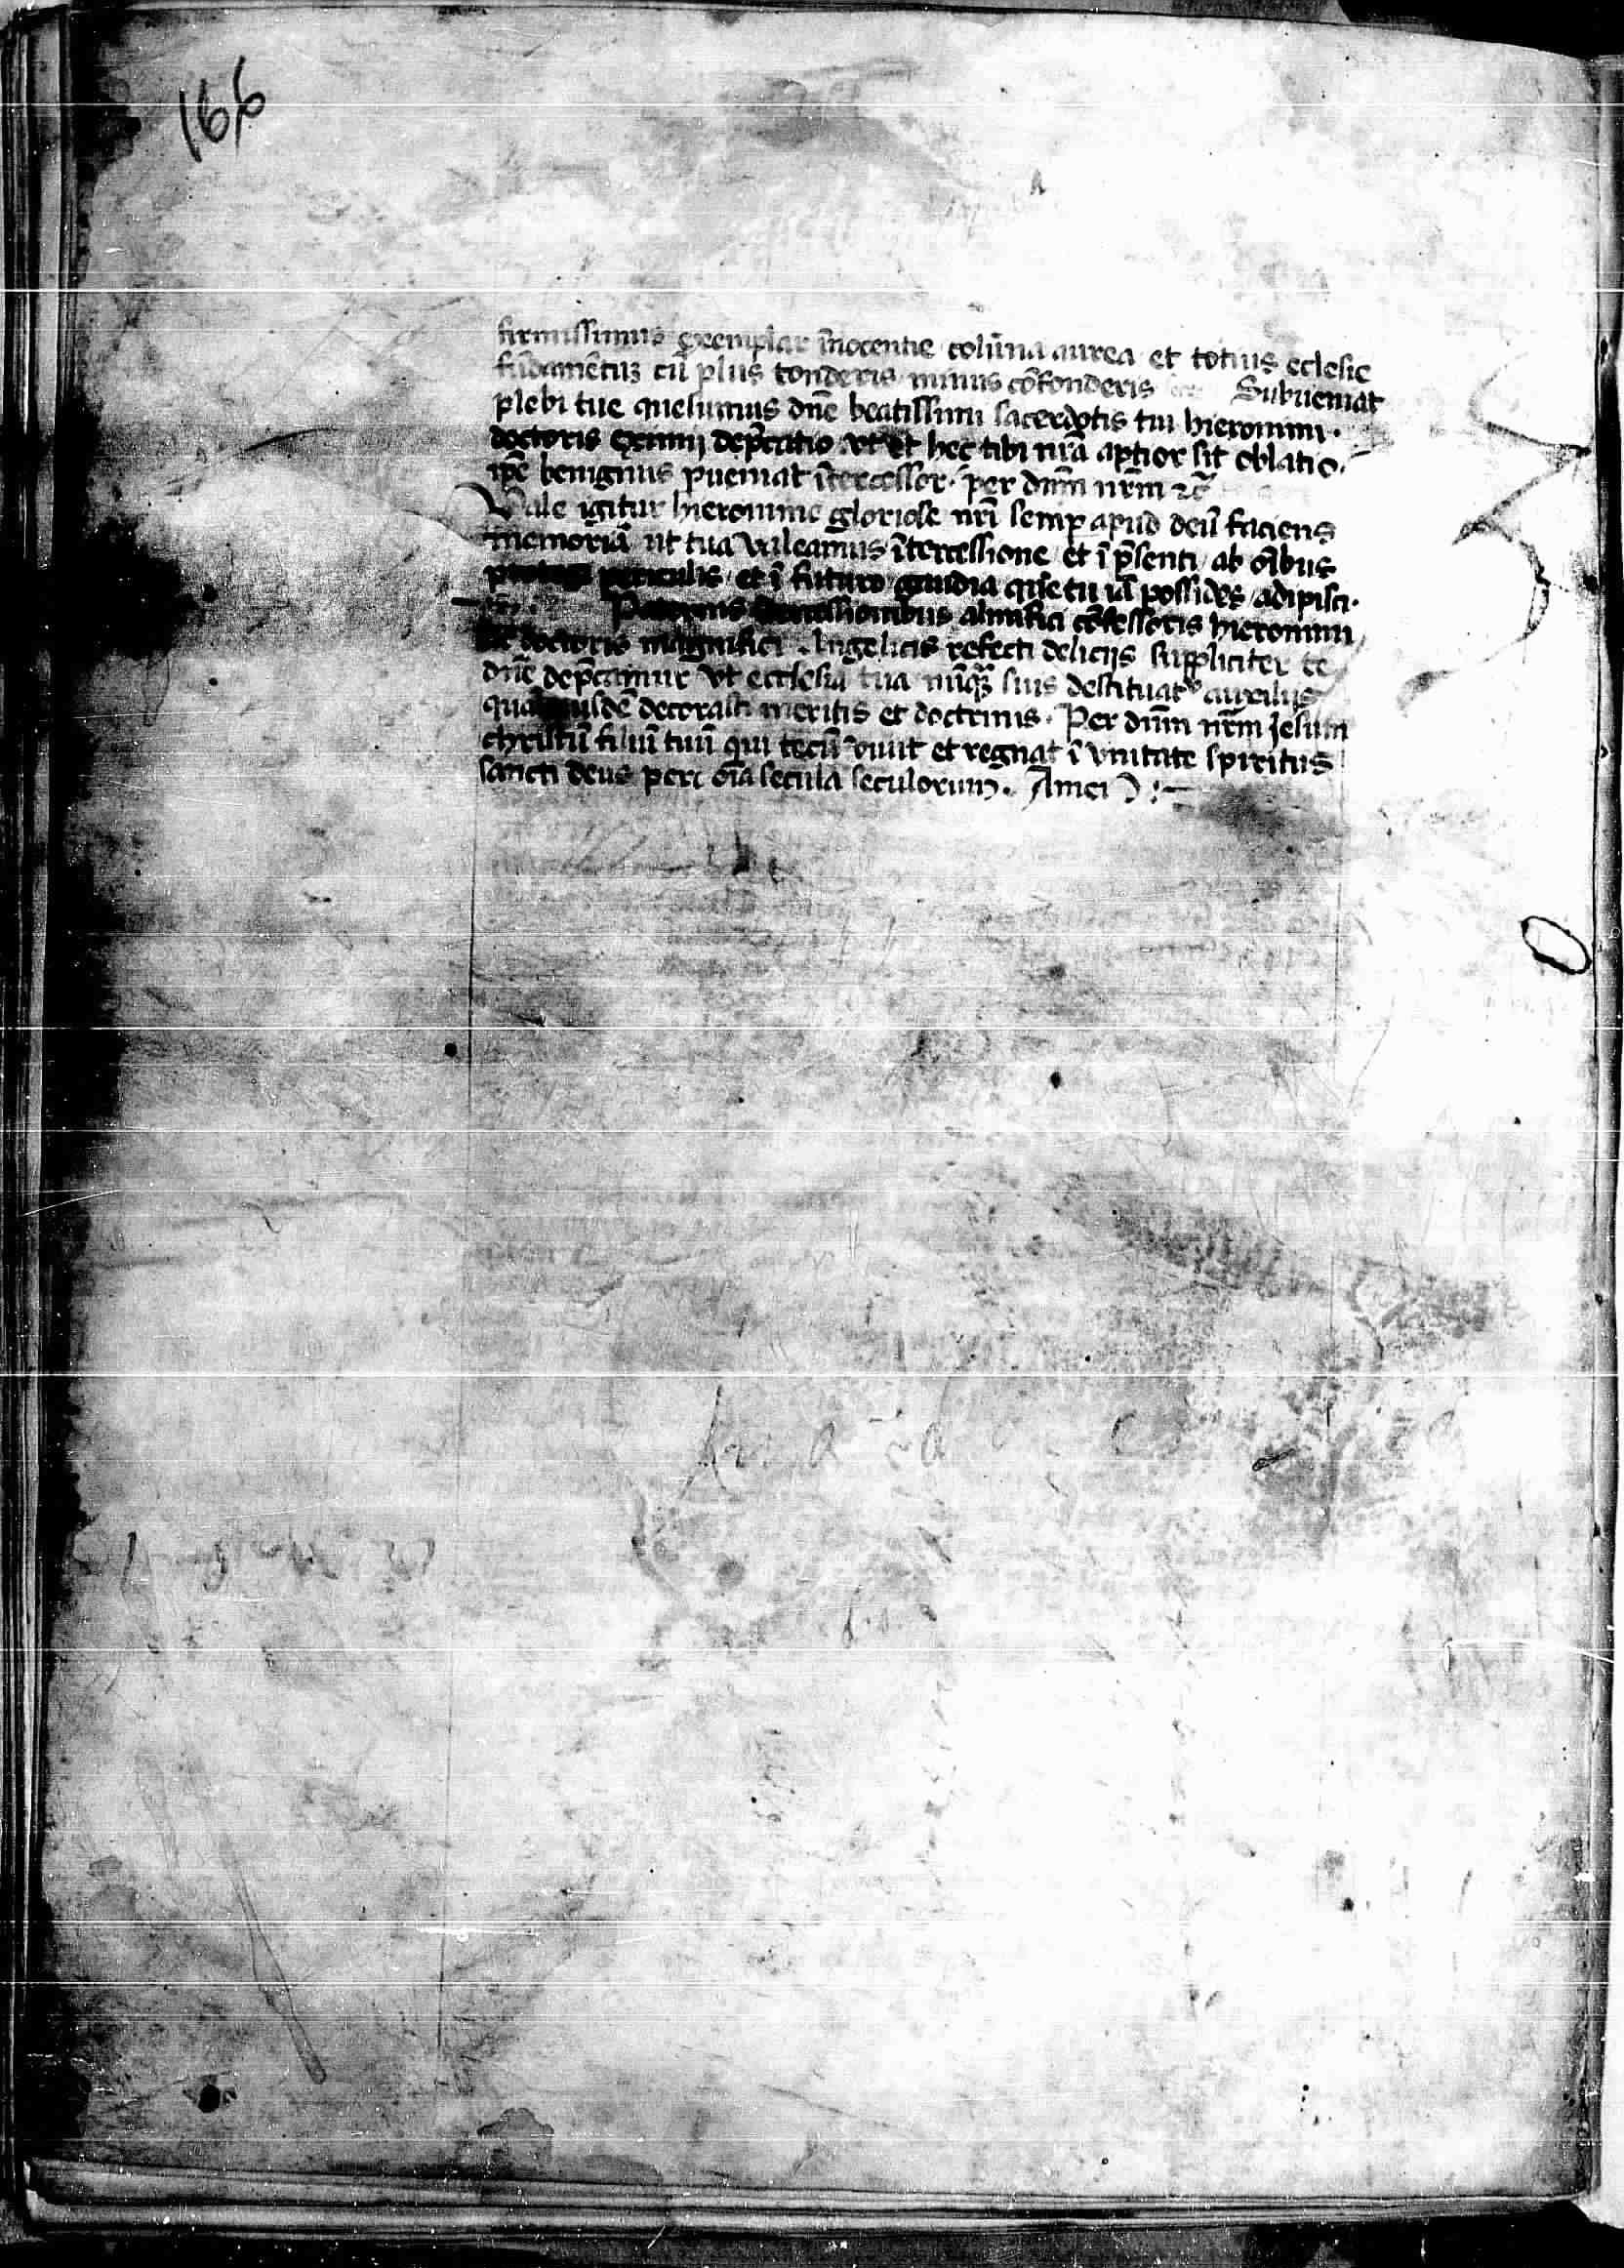 166
firmissimus exemplar īnocentie colūna aurea et totius eclesie
fūdamētuz cū plus tonderis minus cōfonderis Subueniat
plebi tue quesumus dn̄e beatissimi sacerdotis tui hieronimi·
doctoris eximij dep̄catio vt et hec tibi nr̄a aptior sit oblatio·
ip̄e benignius ꝓueniat ītercessor· per dn̄m nr̄m ⁊c̄
Vale igitur hieronime gloriose nr̄i semꝑ apud deū faciens
memoriā ut tua valeamus ītercessione et ī p̄senti ab oībus
periculis et ī futuro gaudia que tu iā possides adipisci·
almifici cōfessoris hieronimi
doctoris magnifici · Angelicis refecti delicijs suppliciter te
dn̄e dep̄camur vt ecclesia tua nūqꝫ suis destituat᷑ auxilijs
quā decorasti meritis et doctrinis · Per dn̄m nr̄m Jesum
christū filiū tuū qui tecū viuit et regnat ī vnitate spiritus
sancti deus per oīa secula seculorum · Amen